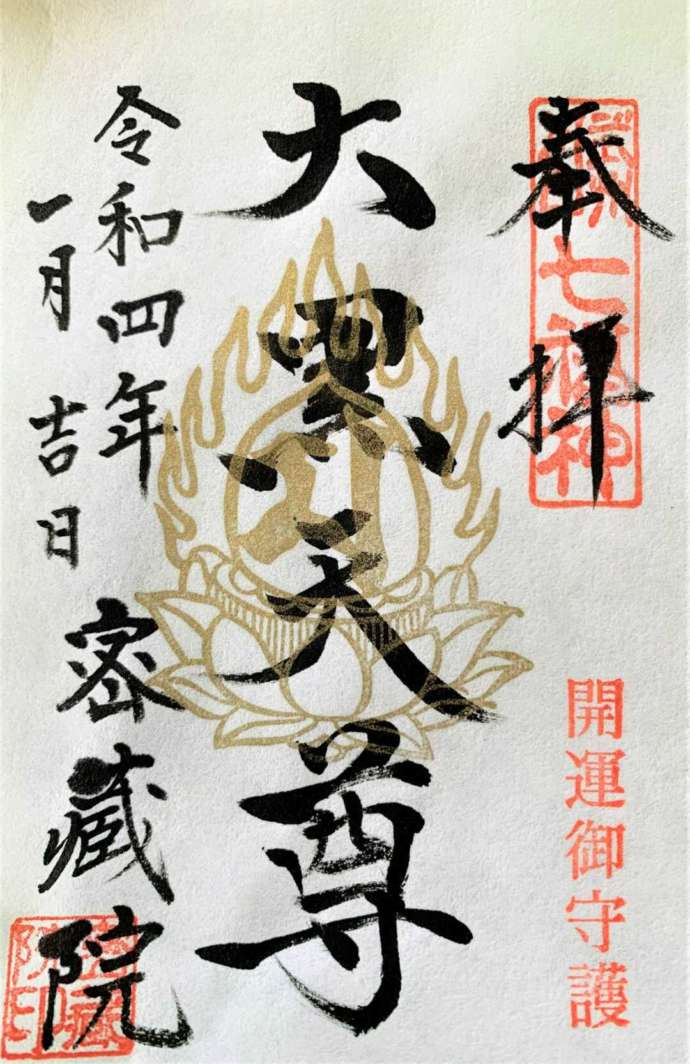 奉拝
七福神
開運御守護
大黒天尊
令和四年
一月吉日
密蔵院
密蔵院印